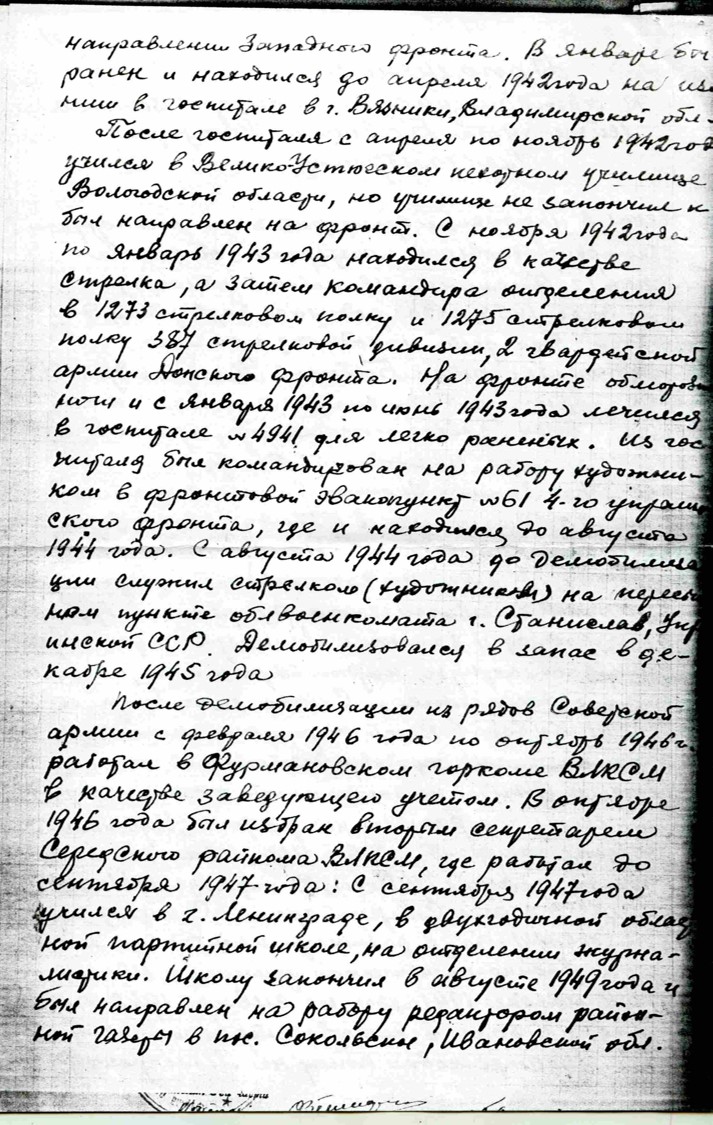 направлении Западного фронта. В январе был
ранен и находился до апреля 1942 года на из
нии в госпитале в г. Вязники, Владимирской обл.
После госпиталя с апреля по ноябрь 1942 год
учился в ВеликоУстюгском пехотном училище
Вологодской области, но училище не закончил и
был направлен на фронт. С ноября 1942 года
по январь 1943 года находился в качестве
стрелка, а затем командира отделения
в 1273 стрелковом полку и 1275 стрелковом
полку 387 стрелковой дивизии, 2 гвардейской
армии Донского фронта. На фронте обморозил
ноги и с января 1943 по июнь 1943 года лечился
в госпитале №4941 для легко раненых. Из гос
питаля был командирован на работу художни-
ком в фронтовой эвакопункт №61 4-го украин
ского фронта, где и находился до августа
1944 года. С августа 1944 года до демобилиза
ции служил стрелком (художником) на пересы
ном пункте облвоенкомата г. Станислав, Укр
инской ССР. Демобилизовался в запас в де-
кабре 1945 года
После демобилизации из рядов Советской
армии с февраля 1946 года по октябрь 1946 г.
работал в Фурмановском горкоме ВЛКСМ
в качестве заведующего учетом. В октябре
1946 года был избран вторым секретарем
Середского райкома ВЛКСМ, где работал до
сентября 1947 года: С сентября 1947 года
учился в г. Ленинграде, в двухгодичной област
ной партийной школе, на отделении журна-
листики. Школу закончил в августе 1949 года и
был направлен на работу редактором район-
ной газеты в пос. Сокольское, Ивановской обл.